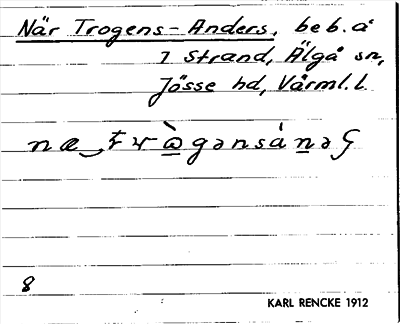 När Trogens-Anders, beb. å
1 strand, Älgå sn,
Jösse hd, Värml. l.
8
KARL RENCKE 1912